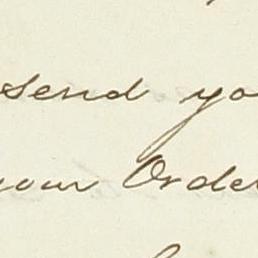 send yo
your Order